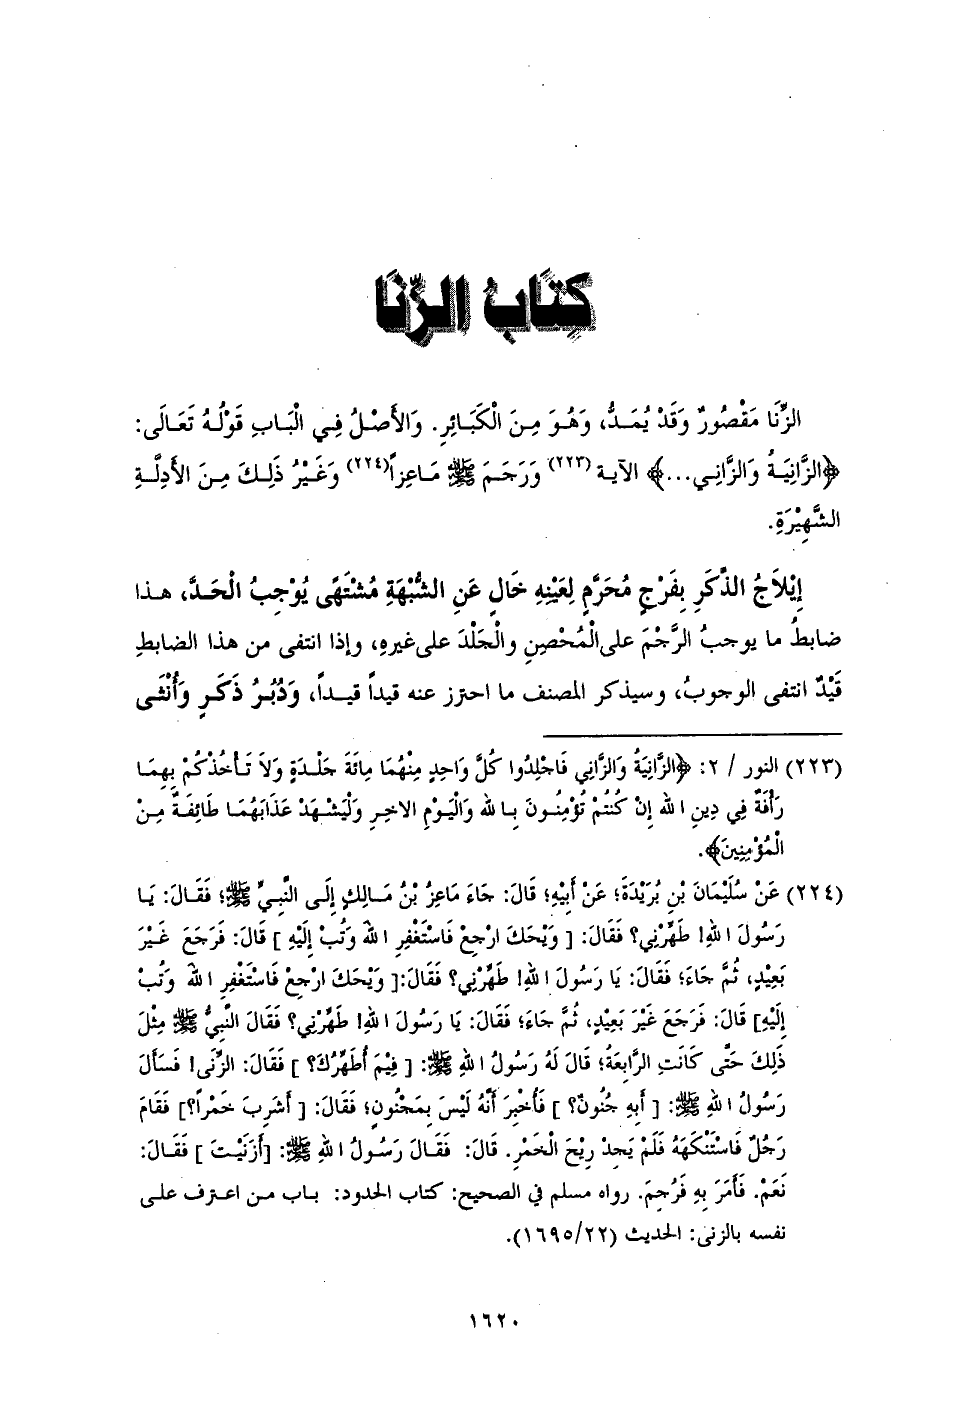 كِتَابُ الزِّنَا
الزِّنَا مَقْصُورٌ وَقَدْ يُمَدُّ، وَهُوَ مِنَ الْكَبَائِرِ. وَالأَصْلُ فِي الْبَابِ قَوْلُهُ تَعَالَى:
﴿الزَّانِيَةُ وَالزَّانِي...﴾ الآية (٢٢٣) وَرَجَمَ ﷺ مَاعِزاً(٢٢٤) وَغَيْرُ ذَلِكَ مِنَ الأَدِلَّةِ
الشَّهِيْرَةِ.
إِيْلاَجُ الذَّكَرِ بِفَرْجٍ مُحَرَّمٍ لِعَيْنِهِ خَالٍ عَنِ الشُّبْهَةِ مُشْتَهًى يُوْجِبُ الْحَدَّ، هذا
ضابطُ ما يوجبُ الرَّجْمَ على الْمُحْصِنِ والْجَلْدَ على غيرهِ، وإذا انتفى من هذا الضابطِ
قَيْدٌ انتفى الوجوبُ، وسيذكر المصنف ما احترز عنه قيداً قيداً، وَدُبُرُ ذَكَرٍ وَأُنْثَى
(٢٢٣) النور / ٢: ﴿الزَّانِيَةُ وَالزَّانِي فَاجْلِدُوا كُلَّ وَاحِدٍ مِنْهُمَا مِائَةَ جَلْدَةٍ وَلاَ تَأْخُذْكُمْ بِهِمَا
رَأْفَةٌ فِي دِينِ اللهِ إِنْ كُنْتُمْ تُؤْمِنُونَ بِاللهِ وَالْيَوْمِ الاخِرِ وَلْيَشْهَدْ عَذَابَهُمَا طَائِفَةٌ مِنْ
الْمُؤْمِنِينَ﴾.
(٢٢٤) عَنْ سُلَيْمَانَ بْنِ بُرَيْدَةَ؛ عَنْ أَبِيْهِ؛ قَالَ: جَاءَ مَاعِزُ بْنُ مَالِكٍ إِلَى النَّبِيِّ ﷺ؛ فَقَالَ: يَا
رَسُولَ اللهِ! طَهِّرْنِي؟ فَقَالَ: [ وَيْحَكَ ارْجِعْ فَاسْتَغْفِرِ اللهَ وَتُبْ إِلَيْهِ ] قَالَ: فَرَجَعَ غَيْرَ
بَعِيْدٍ، ثُمَّ جَاءَ؛ فَقَالَ: يَا رَسُولَ اللهِ! طَهِّرْنِي؟ فَقَالَ:[ وَيْحَكَ ارْجِعْ فَاسْتَغْفِرِ اللهَ وَتُبْ
إِلَيْهِ] قَالَ: فَرَجَعَ غَيْرَ بَعِيدٍ، ثُمَّ جَاءَ؛ فَقَالَ: يَا رَسُولَ اللهِ! طَهِّرْنِي؟ فَقَالَ النَّبِيُّ ﷺ مِثْلَ
ذَلِكَ حَتَّى كَانَتِ الرَّابِعَةُ؛ قَالَ لَهُ رَسُولُ اللهِ ﷺ: [ فِيْمَ أُطَهِّرُكَ؟ ] فَقَالَ: الزِّنَى! فَسَأَلَ
رَسُولُ اللهِ ﷺ: [ أَبِهِ جُنُونٌ؟ ] فَأُخْبِرَ أَنَّهُ لَيْسَ بِمَجْنُونٍ؛ فَقَالَ: [ أَشَرِبَ خَمْراً؟] فَقَامَ
رَجُلٌ فَاسْتَنْكَهَهُ فَلَمْ يَجِدْ رِيْحَ الْخَمْرِ. قَالَ: فَقَالَ رَسُولُ اللهِ ﷺ: [أَزَنَيْتَ ] فَقَالَ:
نَعَمْ. فَأَمَرَ بِهِ فَرُجِمَ. رواه مسلم في الصحيح: كتاب الحدود: باب من اعترف على
نفسه بالزنى: الحديث (١٦٩٥/٢٢).
١٦٢٠